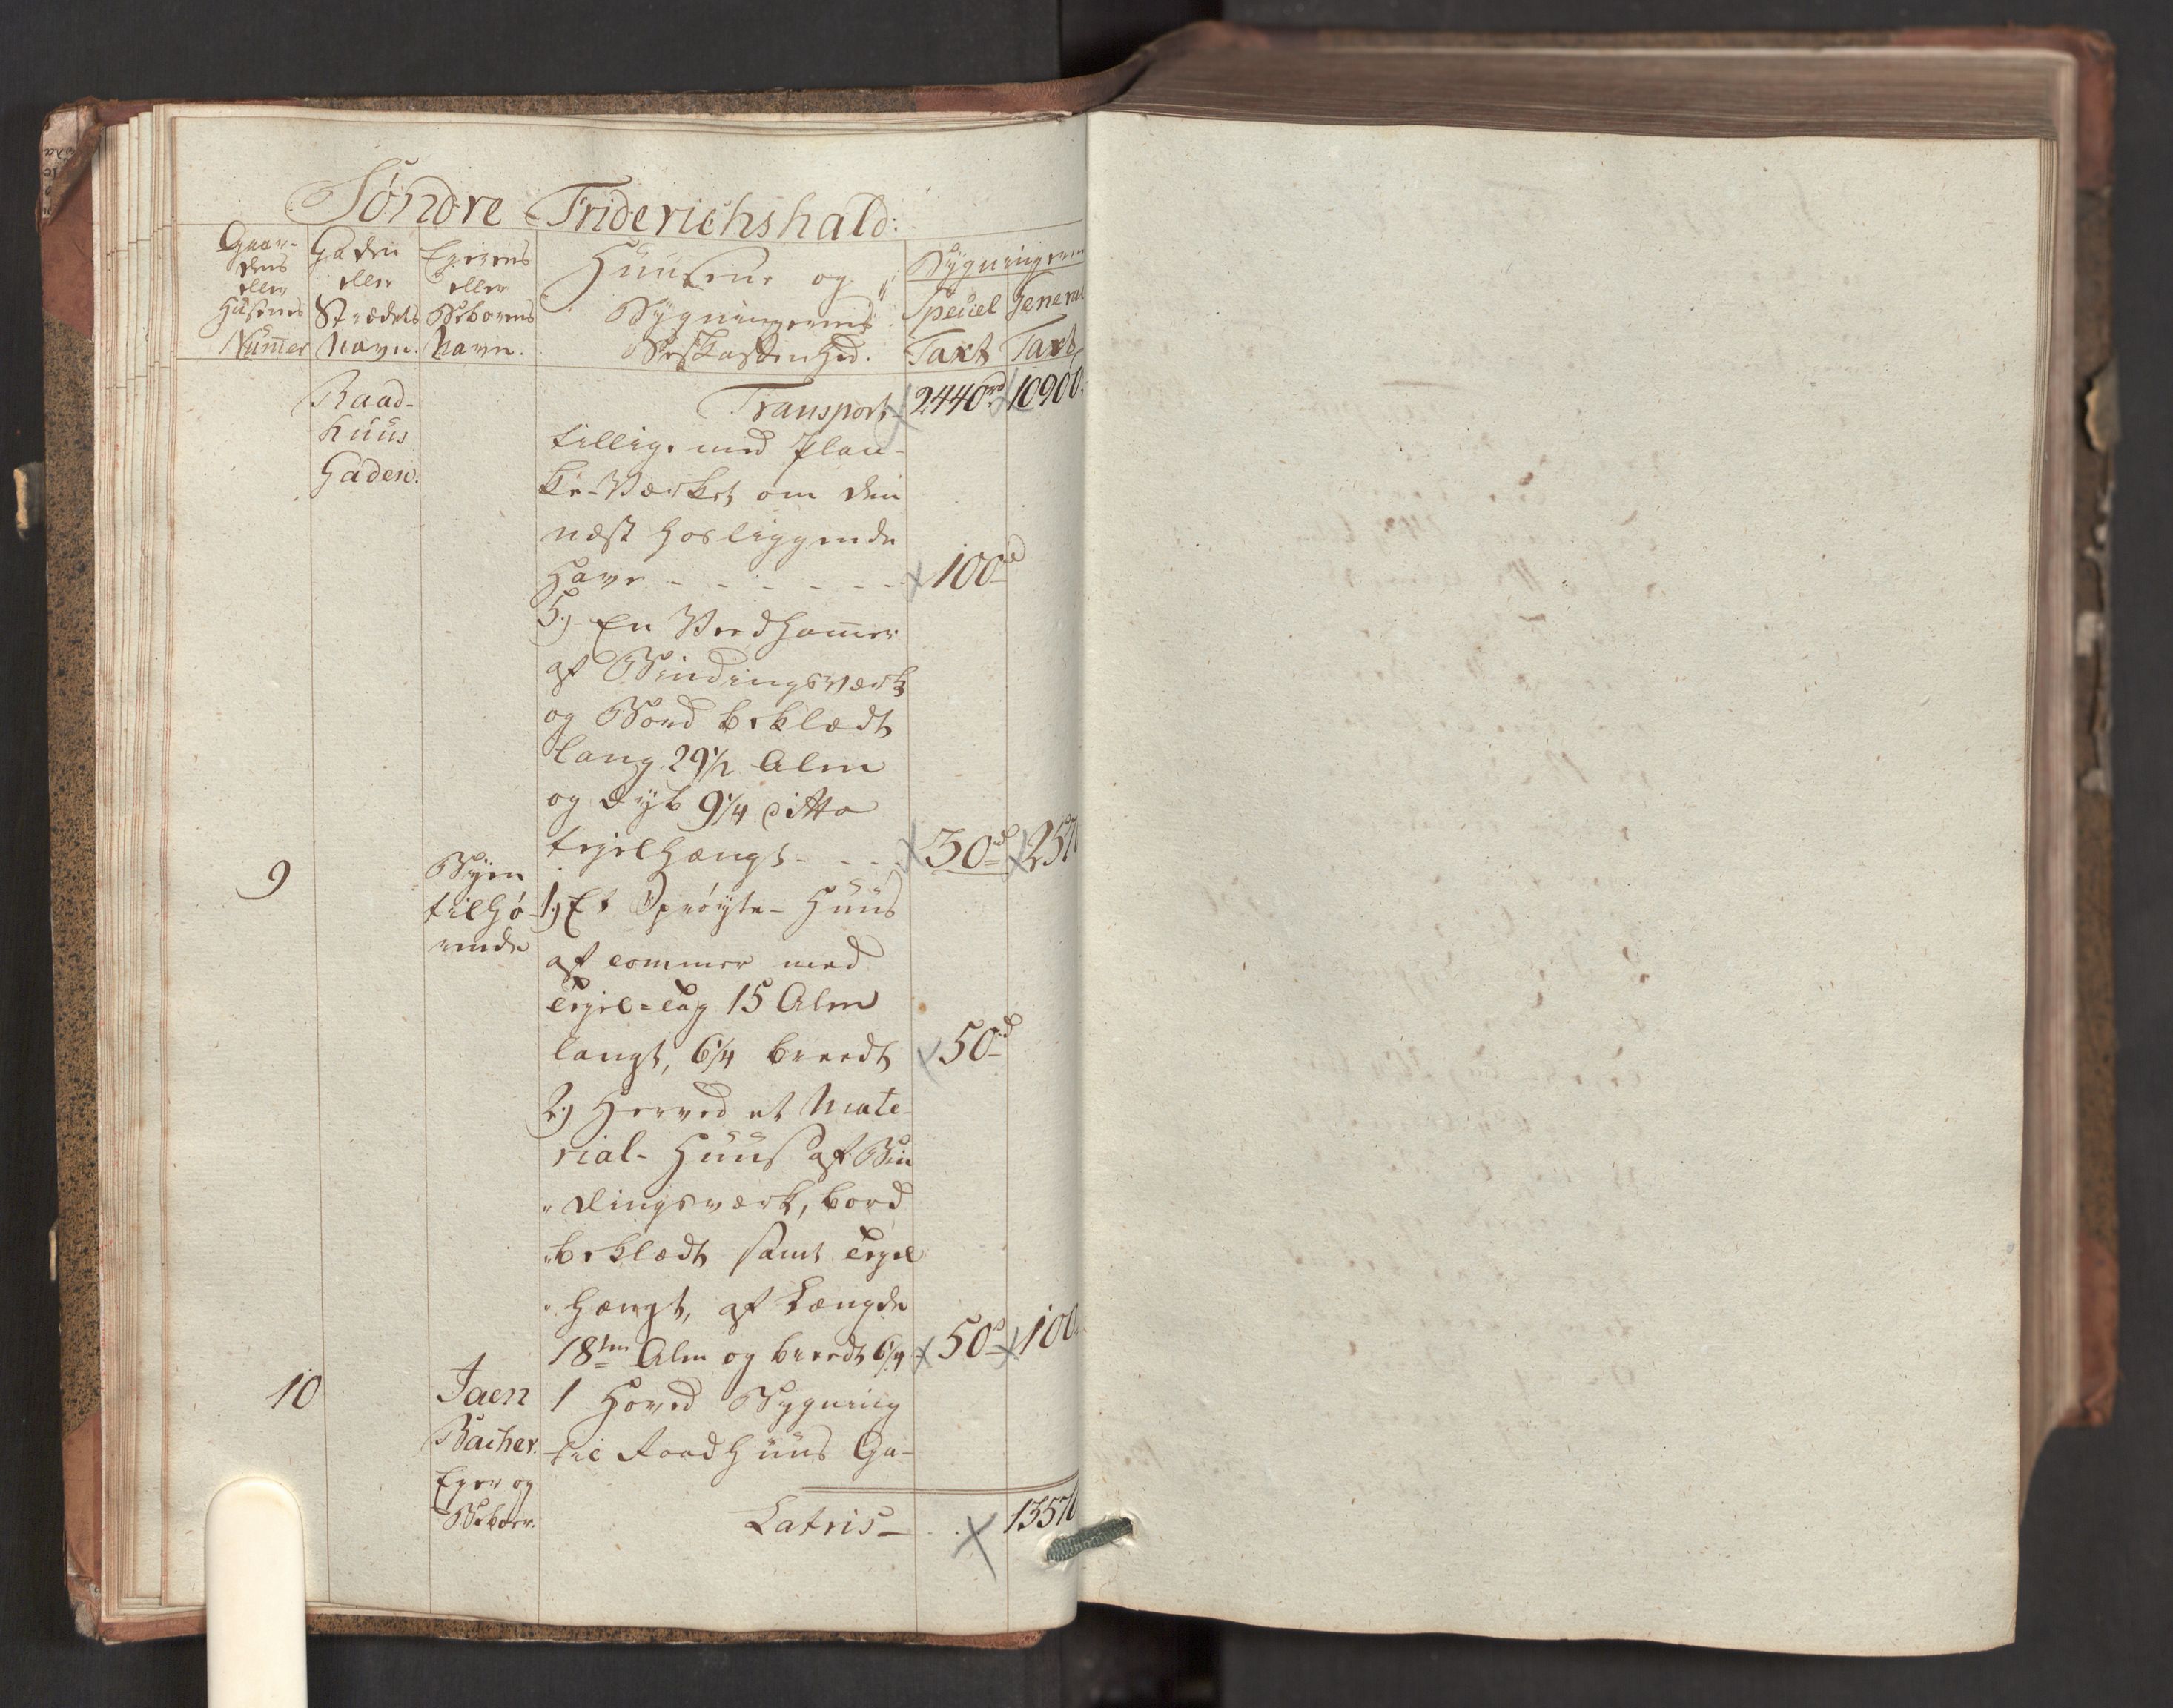 Söndre Friderichshald:
Gaar-
dens
eller
Husenes
Nummer
Gaden
eller
Strædets
Navn.
Eyerens
eller
Beboerens
Navn.
Huusene og
Bygningernes
Beskaffenhed.
Bygningernes
Speciel
Taxt
General
Taxt
Raad-
huus
Gaden.
Transport 2440rd 10900
tillige med Plan-
ke-Værket om den
næst hosliggende
Have - - - - - - 100rd
5) En Veedhammer
af Bindingsværk
og Bord beklædt
lang 29 1/2 Alen
og dyb 9 1/4 ditto
tegelhængt - - - 30rd 2570
9
Byen
tilhø-
rende
1) Et Spröyte-Huus
af tømmer med
tegel-tag 15 Alen
langt, 6 1/4 breedt 50rd
2) Herved et Mate-
rial-Huus af Bin
dingsværk, bord
beklædt samt tegel
hængt, af Længde
18ten Alen og breedt 6 1/4 50rd 100
10
Jaen
Bacher.
Eyer og
Beboer.
1 Hoved Bygning
til Raadhuus Ga-
Latris - 13570